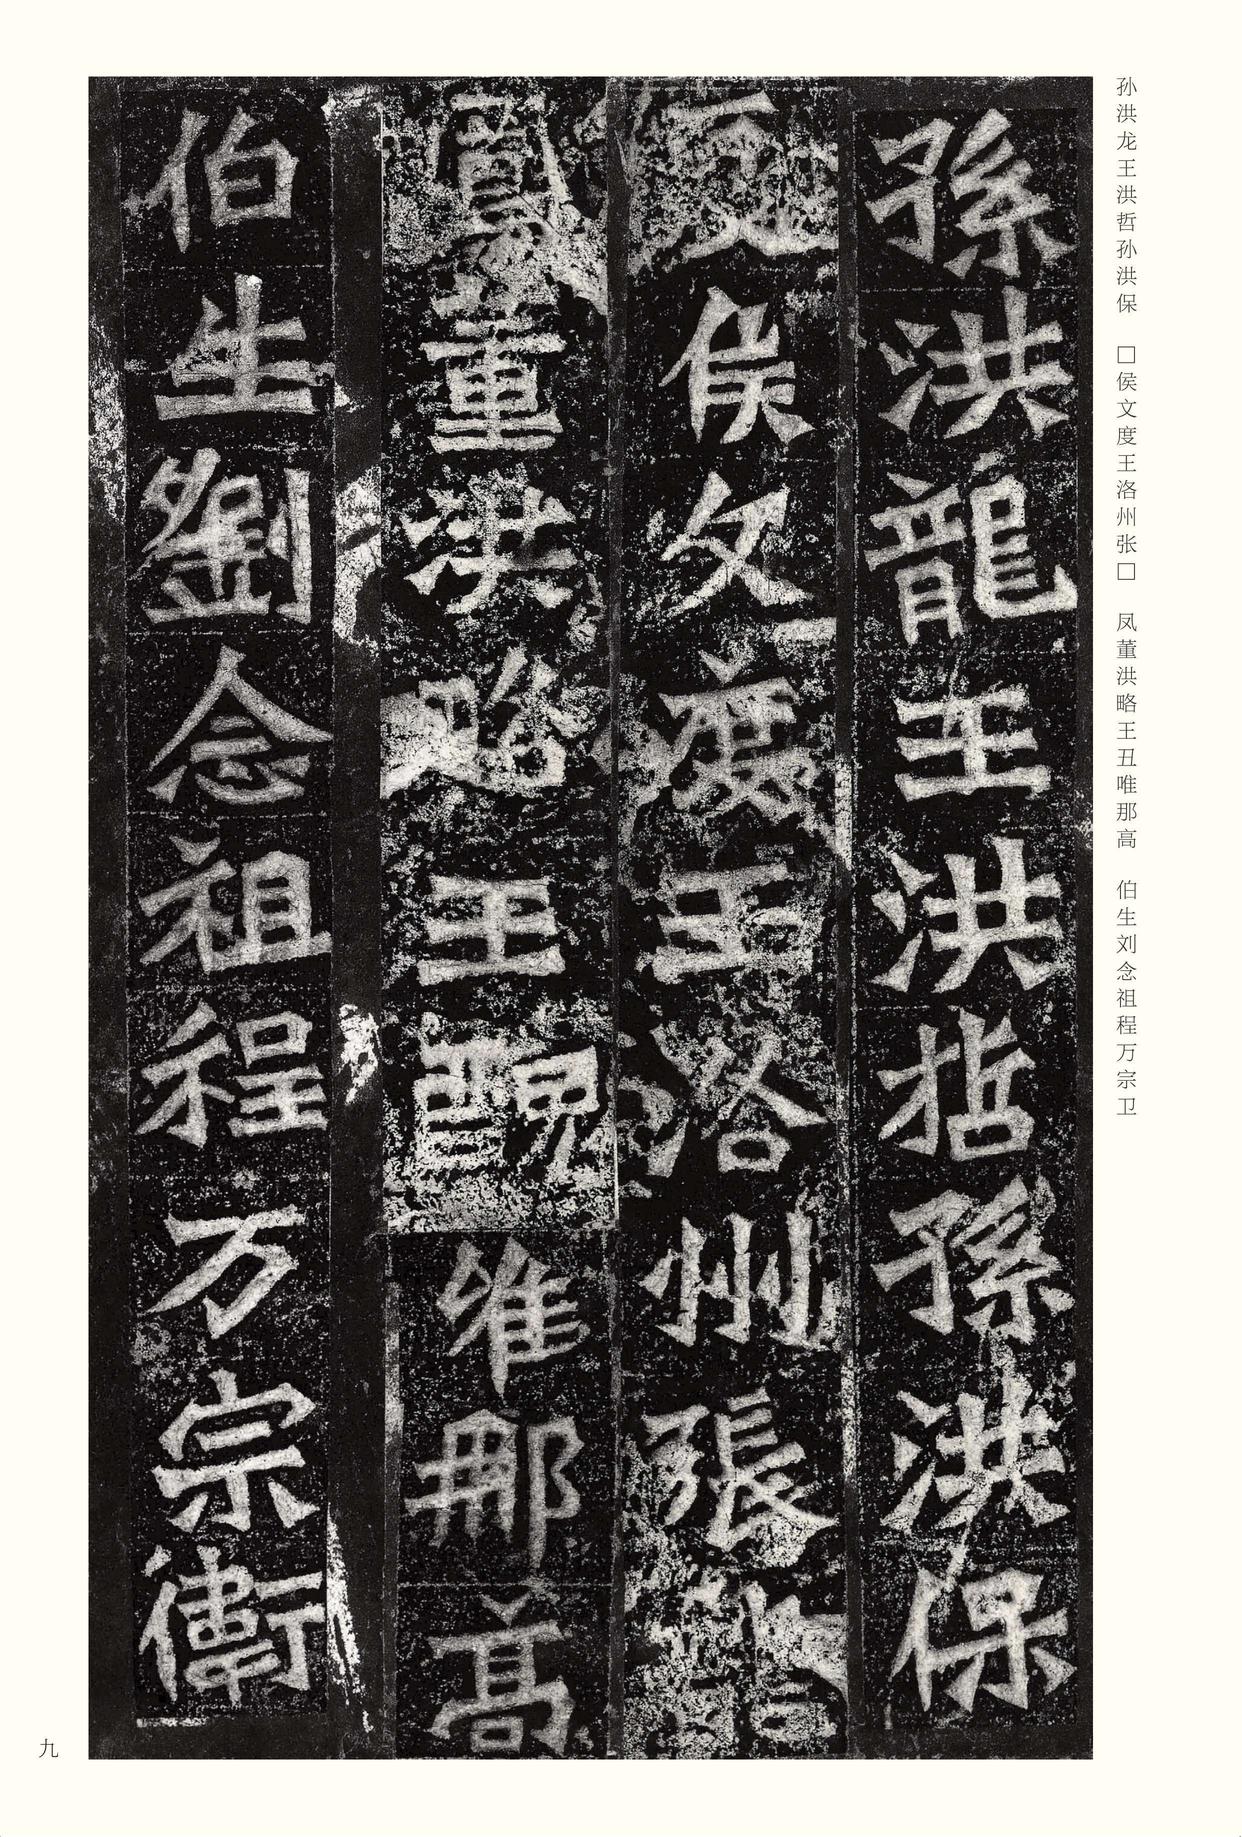 孫洪龍王洪哲孫洪保
侯文度王洛州張
鳳董洪略王醜唯那高
伯生劉念祖程万宗衛
孙洪龙王洪哲孙洪保　□侯文度王洛州张□　凤董洪略王丑唯那高　伯生刘念祖程万宗卫
九